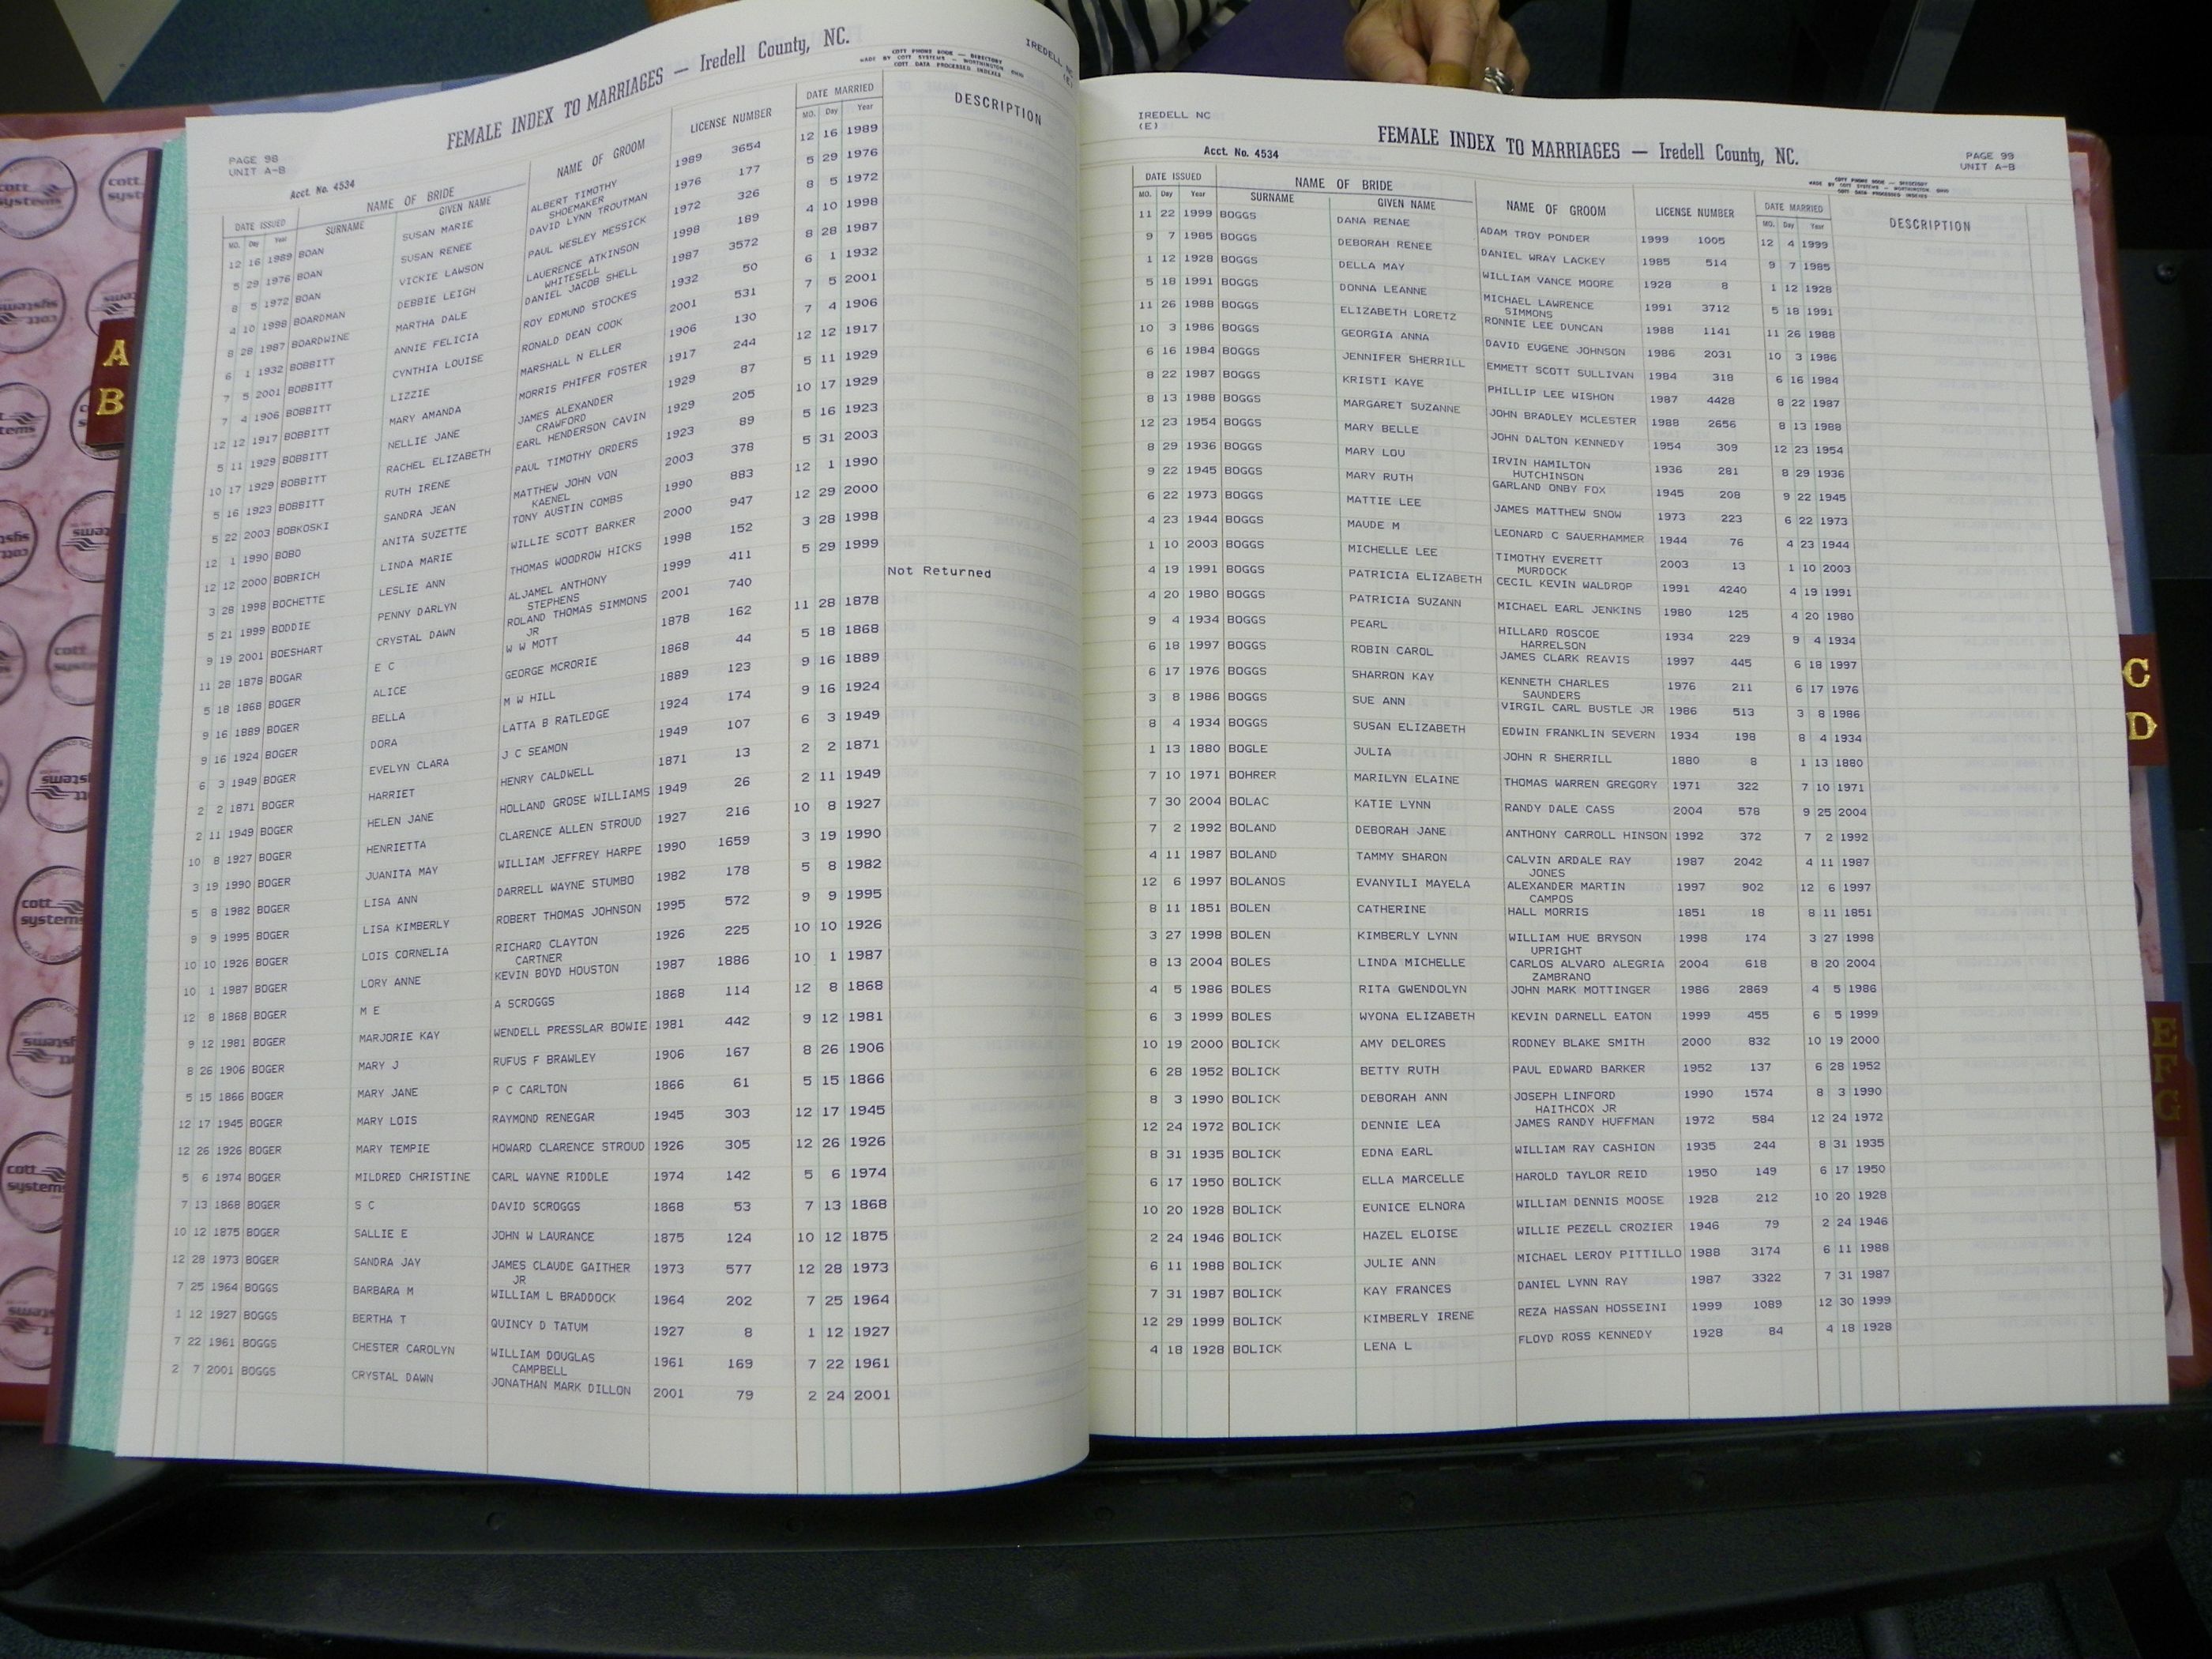 PAGE 98
UNIT A-B
Acct. No. 4534
FEMALE INDEX TO MARRIAGES — Iredell County, NC.
COTT PHONE BOOK — DIRECTORY
MADE BY COTT SYSTEMS — WORTHINGTON OHIO
COTT DATA PROCESSED INDEXES
IREDELL NC
(E)
DATE ISSUED NAME OF BRIDE NAME OF GROOM LICENSE NUMBER DATE MARRIED DESCRIPTION
MO. Day Year SURNAME GIVEN NAME MO. Day Year
12 16 1989 BOAN SUSAN MARIE ALBERT TIMOTHY 1989 3654 12 16 1989
SHOEMAKER
5 29 1976 BOAN SUSAN RENEE DAVID LYNN TROUTMAN 1976 177 5 29 1976
8 5 1972 BOAN VICKIE LAWSON PAUL WESLEY MESSICK 1972 326 8 5 1972
4 10 1998 BOARDMAN DEBBIE LEIGH LAUERENCE ATKINSON 1998 189 4 10 1998
WHITESELL
8 28 1987 BOARDWINE MARTHA DALE DANIEL JACOB SHELL 1987 3572 8 28 1987
6 1 1932 BOBBITT ANNIE FELICIA ROY EDMUND STOCKES 1932 50 6 1 1932
7 5 2001 BOBBITT CYNTHIA LOUISE RONALD DEAN COOK 2001 531 7 5 2001
7 4 1906 BOBBITT LIZZIE MARSHALL N ELLER 1906 130 7 4 1906
12 12 1917 BOBBITT MARY AMANDA MORRIS PHIFER FOSTER 1917 244 12 12 1917
5 11 1929 BOBBITT NELLIE JANE JAMES ALEXANDER 1929 87 5 11 1929
CRAWFORD
10 17 1929 BOBBITT RACHEL ELIZABETH EARL HENDERSON CAVIN 1929 205 10 17 1929
5 16 1923 BOBBITT RUTH IRENE PAUL TIMOTHY ORDERS 1923 89 5 16 1923
5 22 2003 BOBKOSKI SANDRA JEAN MATTHEW JOHN VON 2003 378 5 31 2003
KAENEL
12 1 1990 BOBO ANITA SUZETTE TONY AUSTIN COMBS 1990 883 12 1 1990
12 12 2000 BOBRICH LINDA MARIE WILLIE SCOTT BARKER 2000 947 12 29 2000
3 28 1998 BOCHETTE LESLIE ANN THOMAS WOODROW HICKS 1998 152 3 28 1998
5 21 1999 BODDIE PENNY DARLYN ALJAMEL ANTHONY 1999 411 5 29 1999
STEPHENS
9 19 2001 BOESHART CRYSTAL DAWN ROLAND THOMAS SIMMONS 2001 740 Not Returned
JR
11 28 1878 BOGAR E C W W MOTT 1878 162 11 28 1878
5 18 1868 BOGER ALICE GEORGE MCRORIE 1868 44 5 18 1868
9 16 1889 BOGER BELLA M W HILL 1889 123 9 16 1889
9 16 1924 BOGER DORA LATTA B RATLEDGE 1924 174 9 16 1924
6 3 1949 BOGER EVELYN CLARA J C SEAMON 1949 107 6 3 1949
2 2 1871 BOGER HARRIET HENRY CALDWELL 1871 13 2 2 1871
2 11 1949 BOGER HELEN JANE HOLLAND GROSE WILLIAMS 1949 26 2 11 1949
10 8 1927 BOGER HENRIETTA CLARENCE ALLEN STROUD 1927 216 10 8 1927
3 19 1990 BOGER JUANITA MAY WILLIAM JEFFREY HARPE 1990 1659 3 19 1990
5 8 1982 BOGER LISA ANN DARRELL WAYNE STUMBO 1982 178 5 8 1982
9 9 1995 BOGER LISA KIMBERLY ROBERT THOMAS JOHNSON 1995 572 9 9 1995
10 10 1926 BOGER LOIS CORNELIA RICHARD CLAYTON 1926 225 10 10 1926
CARTNER
10 1 1987 BOGER LORY ANNE KEVIN BOYD HOUSTON 1987 1886 10 1 1987
12 8 1868 BOGER M E A SCROGGS 1868 114 12 8 1868
9 12 1981 BOGER MARJORIE KAY WENDELL PRESSLAR BOWIE 1981 442 9 12 1981
8 26 1906 BOGER MARY J RUFUS F BRAWLEY 1906 167 8 26 1906
5 15 1866 BOGER MARY JANE P C CARLTON 1866 61 5 15 1866
12 17 1945 BOGER MARY LOIS RAYMOND RENEGAR 1945 303 12 17 1945
12 26 1926 BOGER MARY TEMPIE HOWARD CLARENCE STROUD 1926 305 12 26 1926
5 6 1974 BOGER MILDRED CHRISTINE CARL WAYNE RIDDLE 1974 142 5 6 1974
7 13 1868 BOGER S C DAVID SCROGGS 1868 53 7 13 1868
10 12 1875 BOGER SALLIE E JOHN W LAURANCE 1875 124 10 12 1875
12 28 1973 BOGER SANDRA JAY JAMES CLAUDE GAITHER 1973 577 12 28 1973
JR
7 25 1964 BOGGS BARBARA M WILLIAM L BRADDOCK 1964 202 7 25 1964
1 12 1927 BOGGS BERTHA T QUINCY D TATUM 1927 8 1 12 1927
7 22 1961 BOGGS CHESTER CAROLYN WILLIAM DOUGLAS 1961 169 7 22 1961
CAMPBELL
2 7 2001 BOGGS CRYSTAL DAWN JONATHAN MARK DILLON 2001 79 2 24 2001
IREDELL NC
(E)
Acct. No. 4534
FEMALE INDEX TO MARRIAGES — Iredell County, NC.
PAGE 99
UNIT A-B
COTT PHONE BOOK — DIRECTORY
MADE BY COTT SYSTEMS — WORTHINGTON OHIO
COTT DATA PROCESSED INDEXES
DATE ISSUED NAME OF BRIDE NAME OF GROOM LICENSE NUMBER DATE MARRIED DESCRIPTION
MO. Day Year SURNAME GIVEN NAME MO. Day Year
11 22 1999 BOGGS DANA RENAE ADAM TROY PONDER 1999 1005 12 4 1999
9 7 1985 BOGGS DEBORAH RENEE DANIEL WRAY LACKEY 1985 514 9 7 1985
1 12 1928 BOGGS DELLA MAY WILLIAM VANCE MOORE 1928 8 1 12 1928
5 18 1991 BOGGS DONNA LEANNE MICHAEL LAWRENCE 1991 3712 5 18 1991
SIMMONS
11 26 1988 BOGGS ELIZABETH LORETZ RONNIE LEE DUNCAN 1988 1141 11 26 1988
10 3 1986 BOGGS GEORGIA ANNA DAVID EUGENE JOHNSON 1986 2031 10 3 1986
6 16 1984 BOGGS JENNIFER SHERRILL EMMETT SCOTT SULLIVAN 1984 318 6 16 1984
8 22 1987 BOGGS KRISTI KAYE PHILLIP LEE WISHON 1987 4428 8 22 1987
8 13 1988 BOGGS MARGARET SUZANNE JOHN BRADLEY MCLESTER 1988 2656 8 13 1988
12 23 1954 BOGGS MARY BELLE JOHN DALTON KENNEDY 1954 309 12 23 1954
8 29 1936 BOGGS MARY LOU IRVIN HAMILTON 1936 281 8 29 1936
HUTCHINSON
9 22 1945 BOGGS MARY RUTH GARLAND ONBY FOX 1945 208 9 22 1945
6 22 1973 BOGGS MATTIE LEE JAMES MATTHEW SNOW 1973 223 6 22 1973
4 23 1944 BOGGS MAUDE M LEONARD C SAUERHAMMER 1944 76 4 23 1944
1 10 2003 BOGGS MICHELLE LEE TIMOTHY EVERETT 2003 13 1 10 2003
MURDOCK
4 19 1991 BOGGS PATRICIA ELIZABETH CECIL KEVIN WALDROP 1991 4240 4 19 1991
4 20 1980 BOGGS PATRICIA SUZANN MICHAEL EARL JENKINS 1980 125 4 20 1980
9 4 1934 BOGGS PEARL HILLARD ROSCOE 1934 229 9 4 1934
HARRELSON
6 18 1997 BOGGS ROBIN CAROL JAMES CLARK REAVIS 1997 445 6 18 1997
6 17 1976 BOGGS SHARRON KAY KENNETH CHARLES 1976 211 6 17 1976
SAUNDERS
3 8 1986 BOGGS SUE ANN VIRGIL CARL BUSTLE JR 1986 513 3 8 1986
8 4 1934 BOGGS SUSAN ELIZABETH EDWIN FRANKLIN SEVERN 1934 198 8 4 1934
1 13 1880 BOGLE JULIA JOHN R SHERRILL 1880 8 1 13 1880
7 10 1971 BOHRER MARILYN ELAINE THOMAS WARREN GREGORY 1971 322 7 10 1971
7 30 2004 BOLAC KATIE LYNN RANDY DALE CASS 2004 578 9 25 2004
7 2 1992 BOLAND DEBORAH JANE ANTHONY CARROLL HINSON 1992 372 7 2 1992
4 11 1987 BOLAND TAMMY SHARON CALVIN ARDALE RAY 1987 2042 4 11 1987
JONES
12 6 1997 BOLANOS EVANYILI MAYELA ALEXANDER MARTIN 1997 902 12 6 1997
CAMPOS
8 11 1851 BOLEN CATHERINE HALL MORRIS 1851 18 8 11 1851
3 27 1998 BOLEN KIMBERLY LYNN WILLIAM HUE BRYSON 1998 174 3 27 1998
UPRIGHT
8 13 2004 BOLES LINDA MICHELLE CARLOS ALVARO ALEGRIA 2004 618 8 20 2004
ZAMBRANO
4 5 1986 BOLES RITA GWENDOLYN JOHN MARK MOTTINGER 1986 2869 4 5 1986
6 3 1999 BOLES WYONA ELIZABETH KEVIN DARNELL EATON 1999 455 6 5 1999
10 19 2000 BOLICK AMY DELORES RODNEY BLAKE SMITH 2000 832 10 19 2000
6 28 1952 BOLICK BETTY RUTH PAUL EDWARD BARKER 1952 137 6 28 1952
8 3 1990 BOLICK DEBORAH ANN JOSEPH LINFORD 1990 1574 8 3 1990
HAITHCOX JR
12 24 1972 BOLICK DENNIE LEA JAMES RANDY HUFFMAN 1972 584 12 24 1972
8 31 1935 BOLICK EDNA EARL WILLIAM RAY CASHION 1935 244 8 31 1935
6 17 1950 BOLICK ELLA MARCELLE HAROLD TAYLOR REID 1950 149 6 17 1950
10 20 1928 BOLICK EUNICE ELNORA WILLIAM DENNIS MOOSE 1928 212 10 20 1928
2 24 1946 BOLICK HAZEL ELOISE WILLIE PEZELL CROZIER 1946 79 2 24 1946
6 11 1988 BOLICK JULIE ANN MICHAEL LEROY PITTILLO 1988 3174 6 11 1988
7 31 1987 BOLICK KAY FRANCES DANIEL LYNN RAY 1987 3322 7 31 1987
12 29 1999 BOLICK KIMBERLY IRENE REZA HASSAN HOSSEINI 1999 1089 12 30 1999
4 18 1928 BOLICK LENA L FLOYD ROSS KENNEDY 1928 84 4 18 1928
A
B
C
D
E
F
G
cott systems